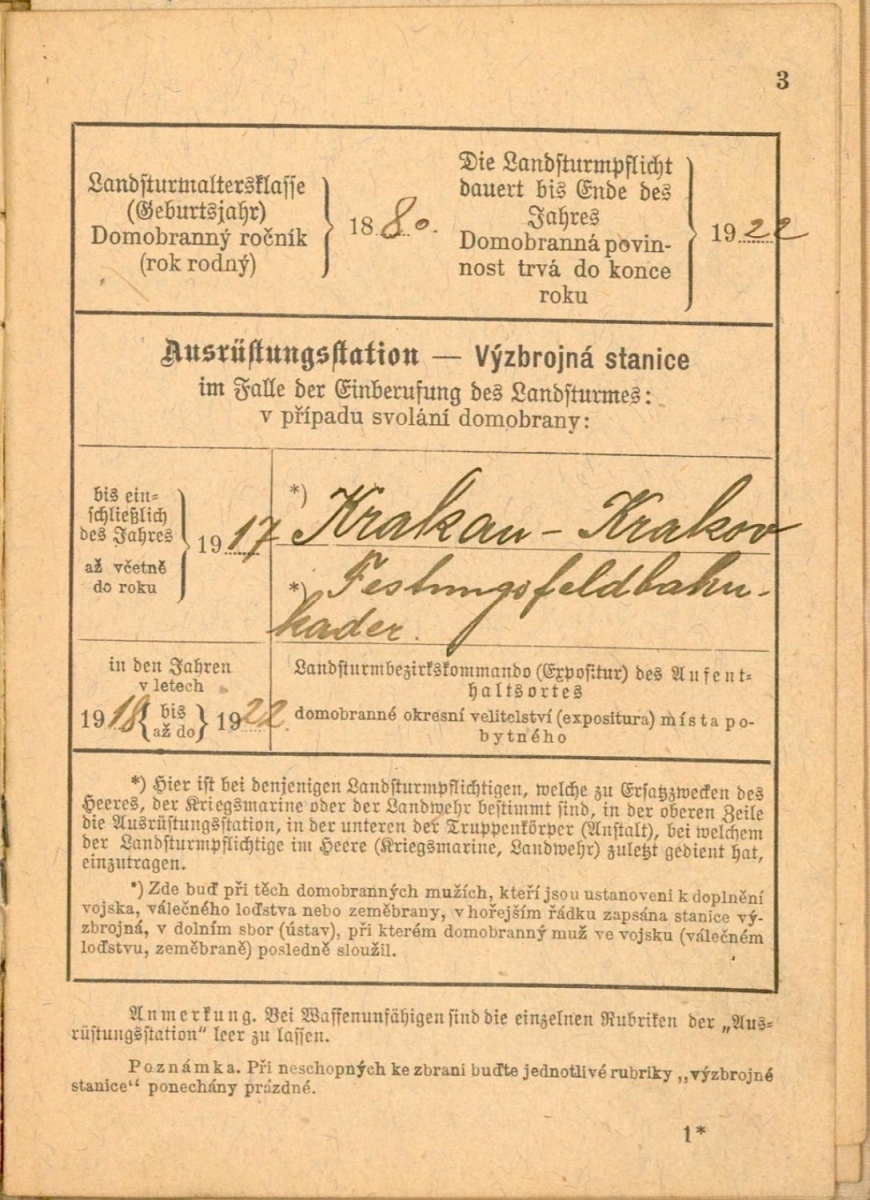 3
Landsturmaltersklasse
(Geburtsjahr)
Domobranný ročník
(rok rodný)
1880.
Die Landsturmpflicht
dauert bis Ende des
Jahres
Domobranná povin-
nost trvá do konce
roku
1922
Ausrüstungsstation — Výzbrojná stanice
im Falle der Einberufung des Landsturmes:
v případu svolání domobrany:
bis ein-
schließlich
des Jahres
až včetně
do roku
1917
*) Krakau - Krakov
*) Festungsfeldbahn-
kader.
in den Jahren
v letech
1918 { bis
až do } 1922.
Landsturmbezirkskommando (Expositur) des Aufent-
haltsortes
domobranné okresní velitelství (expositura) místa po-
bytného
*) Hier ist bei denjenigen Landsturmpflichtigen, welche zu Ersatzzwecken des
Heeres, der Kriegsmarine oder der Landwehr bestimmt sind, in der oberen Zeile
die Ausrüstungsstation, in der unteren der Truppenkörper (Anstalt), bei welchem
der Landsturmpflichtige im Heere (Kriegsmarine, Landwehr) zuletzt gedient hat,
einzutragen.
*) Zde buď při těch domobranných mužích, kteří jsou ustanoveni k doplnění
vojska, válečného loďstva nebo zeměbrany, v hořejším řádku zapsána stanice vý-
zbrojná, v dolním sbor (ústav), při kterém domobranný muž ve vojsku (válečném
loďstvu, zeměbraně) posledně sloužil.
Anmerkung. Bei Waffenunfähigen sind die einzelnen Rubriken der „Aus-
rüstungsstation" leer zu lassen.
Poznámka. Při neschopných ke zbrani buďte jednotlivé rubriky „výzbrojné
stanice" ponechány prázdné.
1*